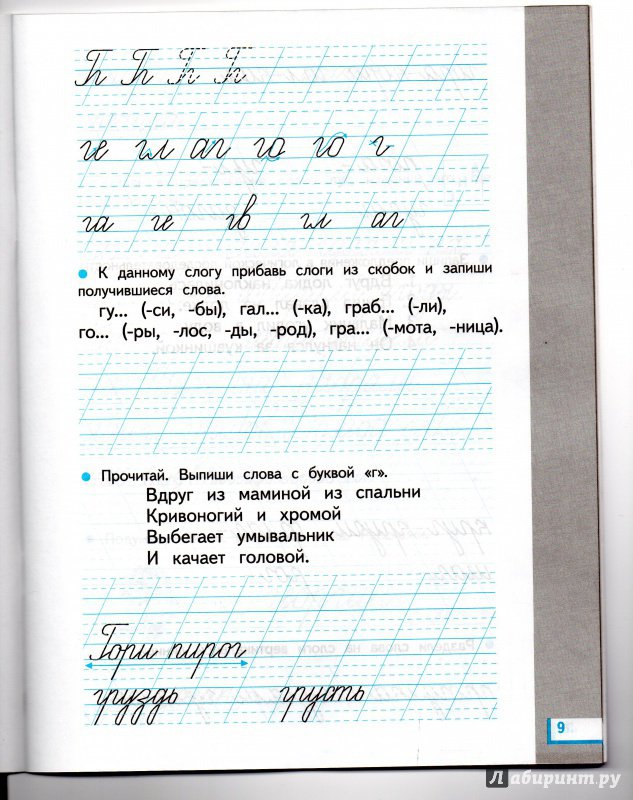 ге гл аг го го г
га ге гв гл аг
К данному слогу прибавь слоги из скобок и запиши
получившиеся слова.
гу... (-си, -бы), гал... (-ка), граб... (-ли),
го... (-ры, -лос, -ды, -род), гра... (-мота, -ница).
Прочитай. Выпиши слова с буквой «г».
Вдруг из маминой из спальни
Кривоногий и хромой
Выбегает умывальник
И качает головой.
Гори пирог
груздь грусть
9
Лабиринт.ру